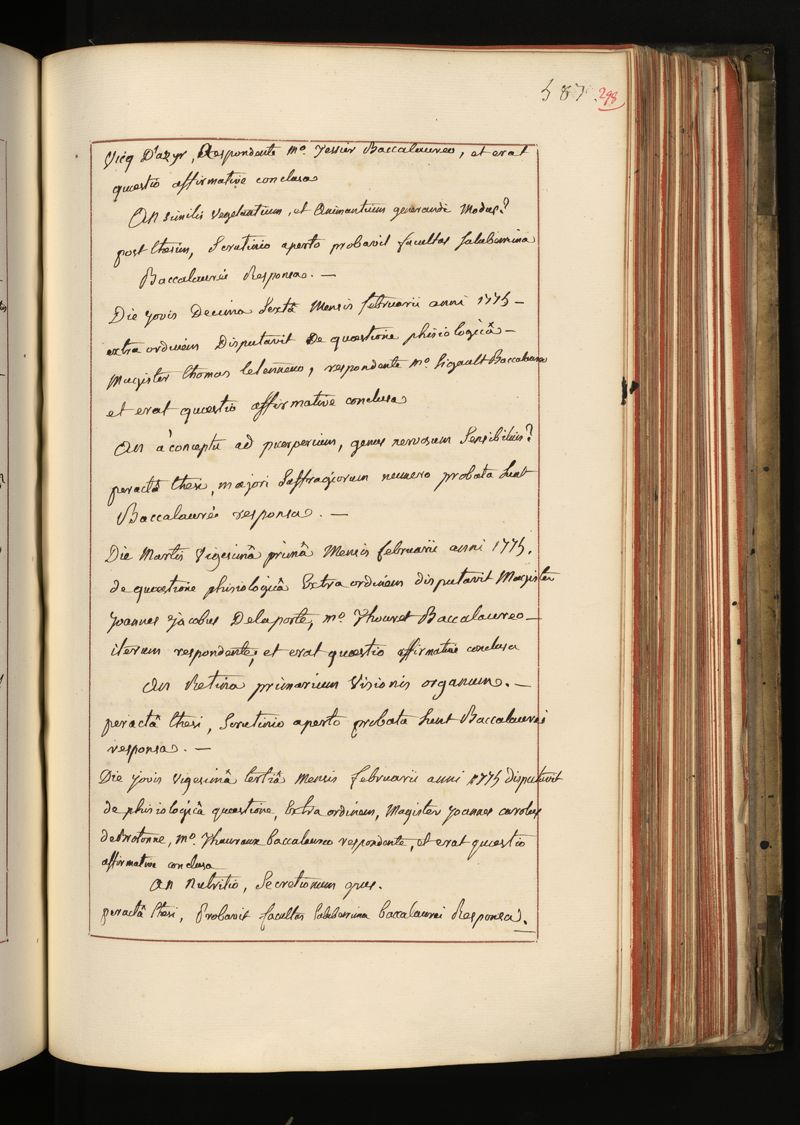 587 298
Vicq D'azyr, Respondente Mo. Tessier Baccalaureo, et erat
quæstio affirmative conclusa
An similis vegetantium, et Animantium generandi Modus?
post thesim, Scrutinio aperto probavit facultas Saluberrima
Baccalaurei Responsa. —
Die Jovis Decima Sextâ Mensis februarii anni 1775 —
extra ordinem Disputavit De quæstione phisiologicâ —
Magister thomas , respondente Mo. Sigault Baccalaureo
et erat quæstio affirmative conclusa
An a conceptu ad puerperium, genus nervosum Sensibilius?
peractâ thesi, majori Suffragiorum numero probata Sunt
Baccalaurei responsa. —
Die Martis Vigesimâ primâ Mensis februarii anni 1775.
de quæstione phisiologicâ Extra ordinem disputavit Magister
Joannes Jacobus Delaporte, Mo. Thouret Baccalaureo —
iterum respondente, et erat quæstio affirmative conclusa
An Retina primarium Visionis organum. —
peractâ thesi, Scrutinio aperto probata Sunt Baccalaurei
responsa. —
Die Jovis Vigesimâ tertiâ Mensis februarii anni 1775 disputavit
de phisiologicâ quæstione, Extra ordinem, Magister Joannes carolus
debrotonne, Mo. baccalaureo respondente, et erat quæstio
affirmative conclusa
An Nutritio, Secretionum opus.
peractâ thesi, Probavit facultas Saluberrima baccalaurei Responsa.